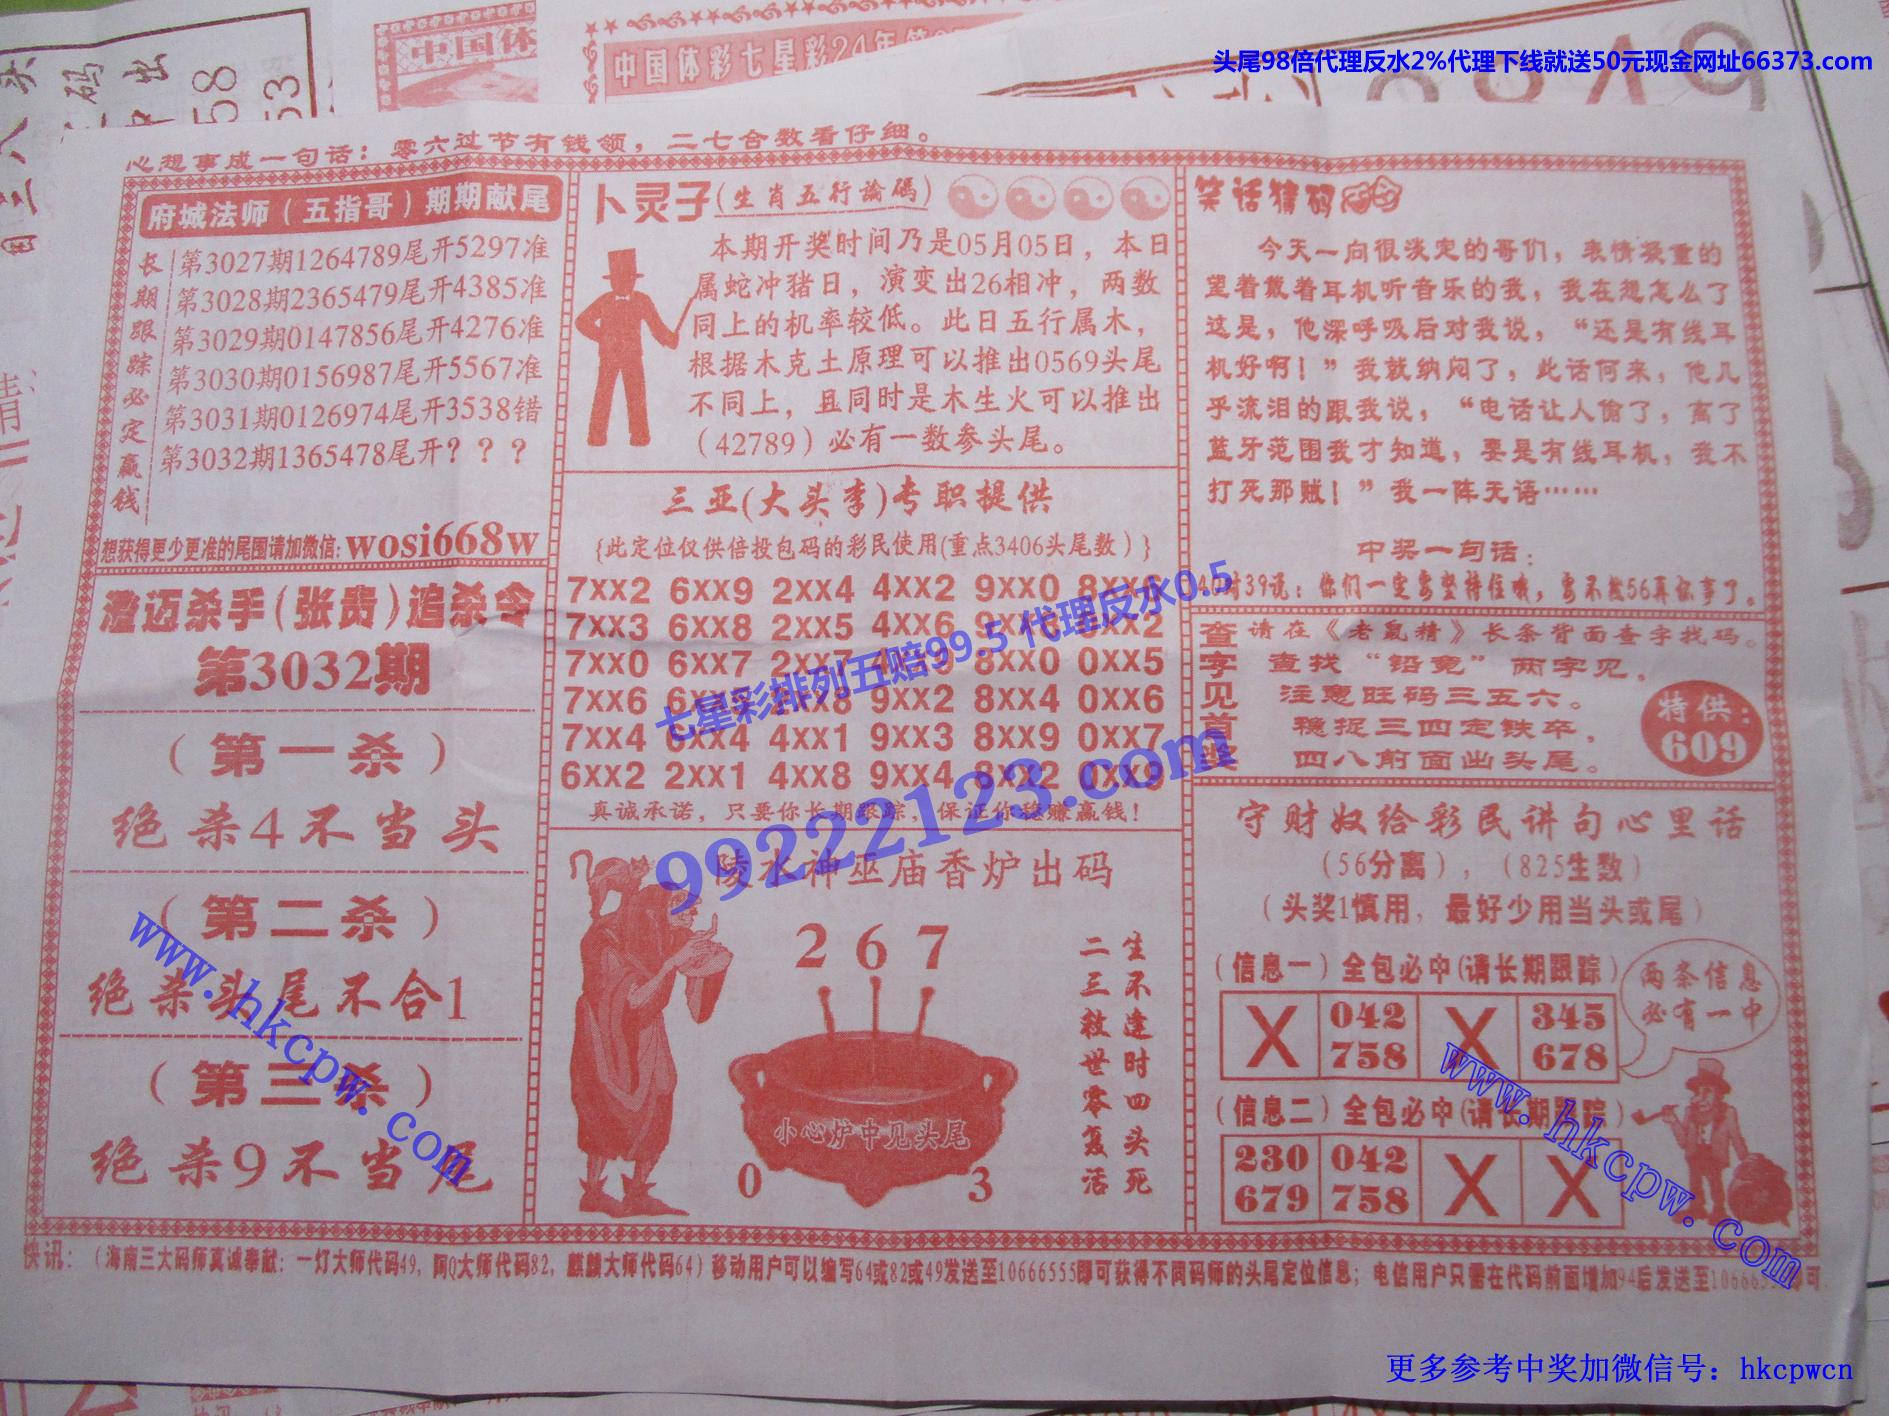 头尾98倍代理反水2%代理下线就送50元现金网址66373.com
中国体
中国体彩七星彩24年第
心想事成一句话：零六过节有钱领，二七合数看仔细。
府城法师（五指哥）期期献尾
长期跟踪必定赢钱
第3027期1264789尾开5297准
第3028期2365479尾开4385准
第3029期0147856尾开4276准
第3030期0156987尾开5567准
第3031期0126974尾开3538错
第3032期1365478尾开？？？
想获得更少更准的尾围请加微信:wosi668w
澄迈杀手(张贵)追杀令
第3032期
（第一杀）
绝杀4不当头
（第二杀）
绝杀头尾不合1
（第三杀）
绝杀9不当尾
卜灵子(生肖五行論碼)
本期开奖时间乃是05月05日，本日
属蛇冲猪日，演变出26相冲，两数
同上的机率较低。此日五行属木，
根据木克土原理可以推出0569头尾
不同上，且同时是木生火可以推出
（42789）必有一数参头尾。
三亚(大头李)专职提供
{此定位仅供倍投包码的彩民使用(重点3406头尾数）}
7XX2 6XX9 2XX4 4XX2 9XX0 8XX6
7XX3 6XX8 2XX5 4XX6
7XX0 6XX7 2XX7 8XX0 0XX5
7XX6 9XX2 8XX4 0XX6
7XX4 6XX4 4XX1 9XX3 8XX9 0XX7
6XX2 2XX1 4XX8 9XX4 8XX2 0XX9
真诚承诺，只要你长期跟踪，保证你稳赚赢钱！
陵水神巫庙香炉出码
2 6 7
小心炉中见头尾
0 3
生不逢时四头死
二三救世零复活
笑话猜码
今天一向很淡定的哥们，表情凝重的
望着戴着耳机听音乐的我，我在想怎么了
这是，他深呼吸后对我说，“还是有线耳
机好啊！”我就纳闷了，此话何来，他几
乎流泪的跟我说，“电话让人偷了，离了
蓝牙范围我才知道，要是有线耳机，我不
打死那贼！”我一阵无语……
中奖一句话：
对39说：你们一定要坚持住哦，要不然56真坏事了。
查字见首奖
请在《老鼠精》长条背面查字找码。
查找“铅竞”两字见，
注意旺码三五六。
稳捉三四定铁卒，
四八前面出头尾。
特供：
609
守财奴给彩民讲句心里话
（56分离），（825生数）
（头奖1慎用，最好少用当头或尾）
（信息一）全包必中(请长期跟踪)
X 042 X 345
758 678
两条信息
必有一中
（信息二）全包必中(请长期跟踪)
230 042 X X
679 758
快讯：（海南三大码师真诚奉献：一灯大师代码49，阿Q大师代码82，麒麟大师代码64）移动用户可以编写64或82或49发送至10666555即可获得不同码师的头尾定位信息；电信用户只需在代码前面增加94后发送至
七星彩排列五赔99.5 代理反水0.5
99222123.com
www.hkcpw.com
www.hkcpw.com
更多参考中奖加微信号：hkcpwcn